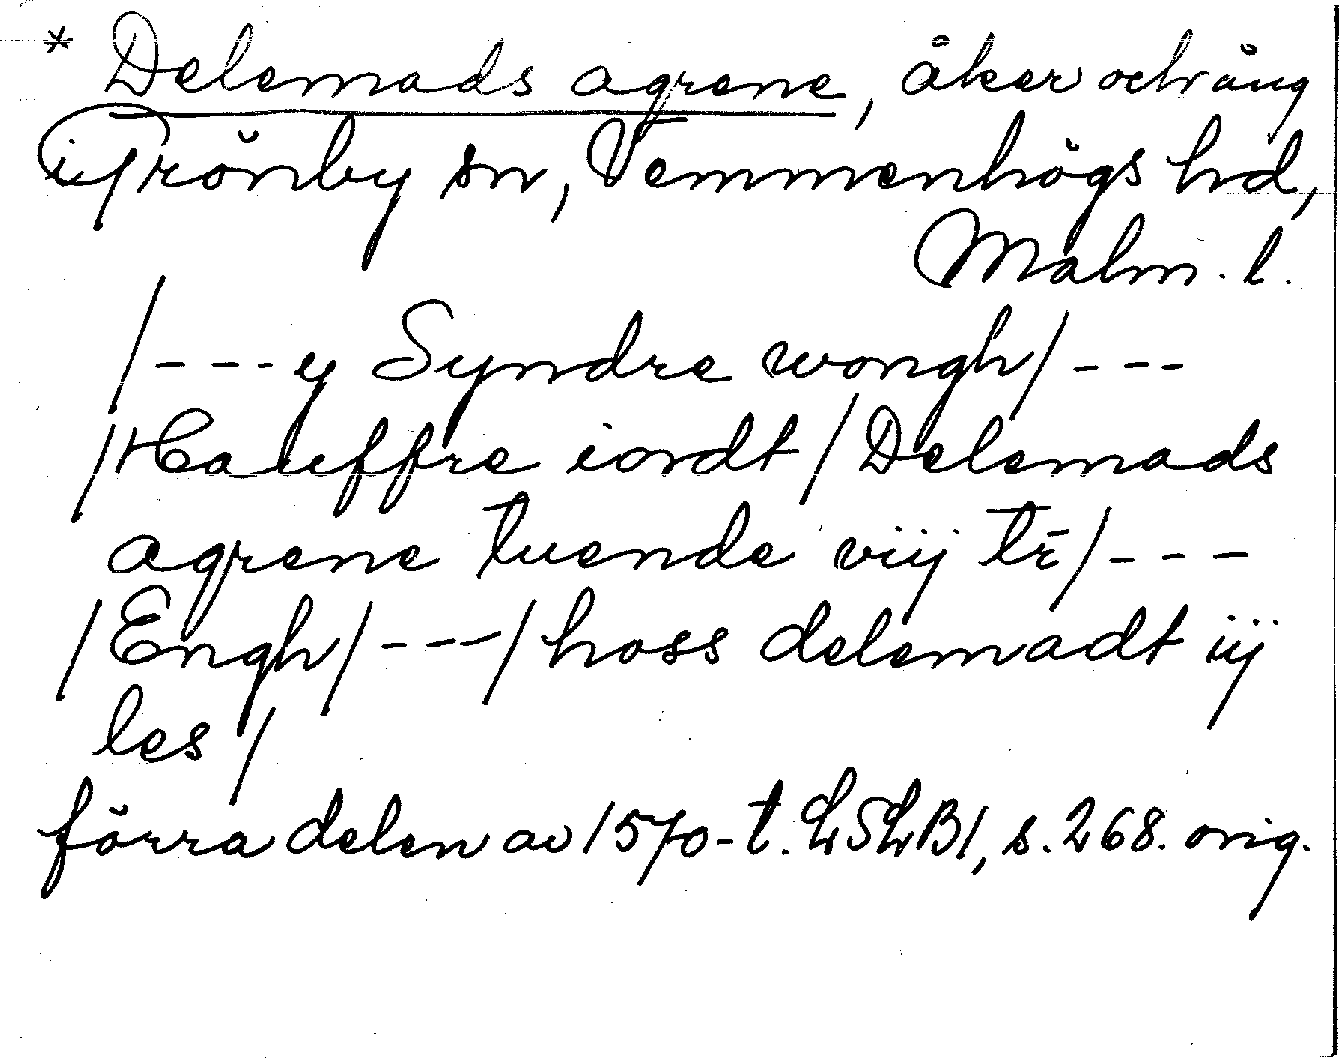 * Delemads agrene, åker och äng
i Grönby sn, Vemmenhögs hd,
Malm. l.
/---y Syndre wongh/---
/Haueffre iordt/Delemads
agrene tuende viij tr̄/---
/Engh/---/hoss delemadt iij
les/
förra delen av 1570-t. LSLB1, s. 268. orig.